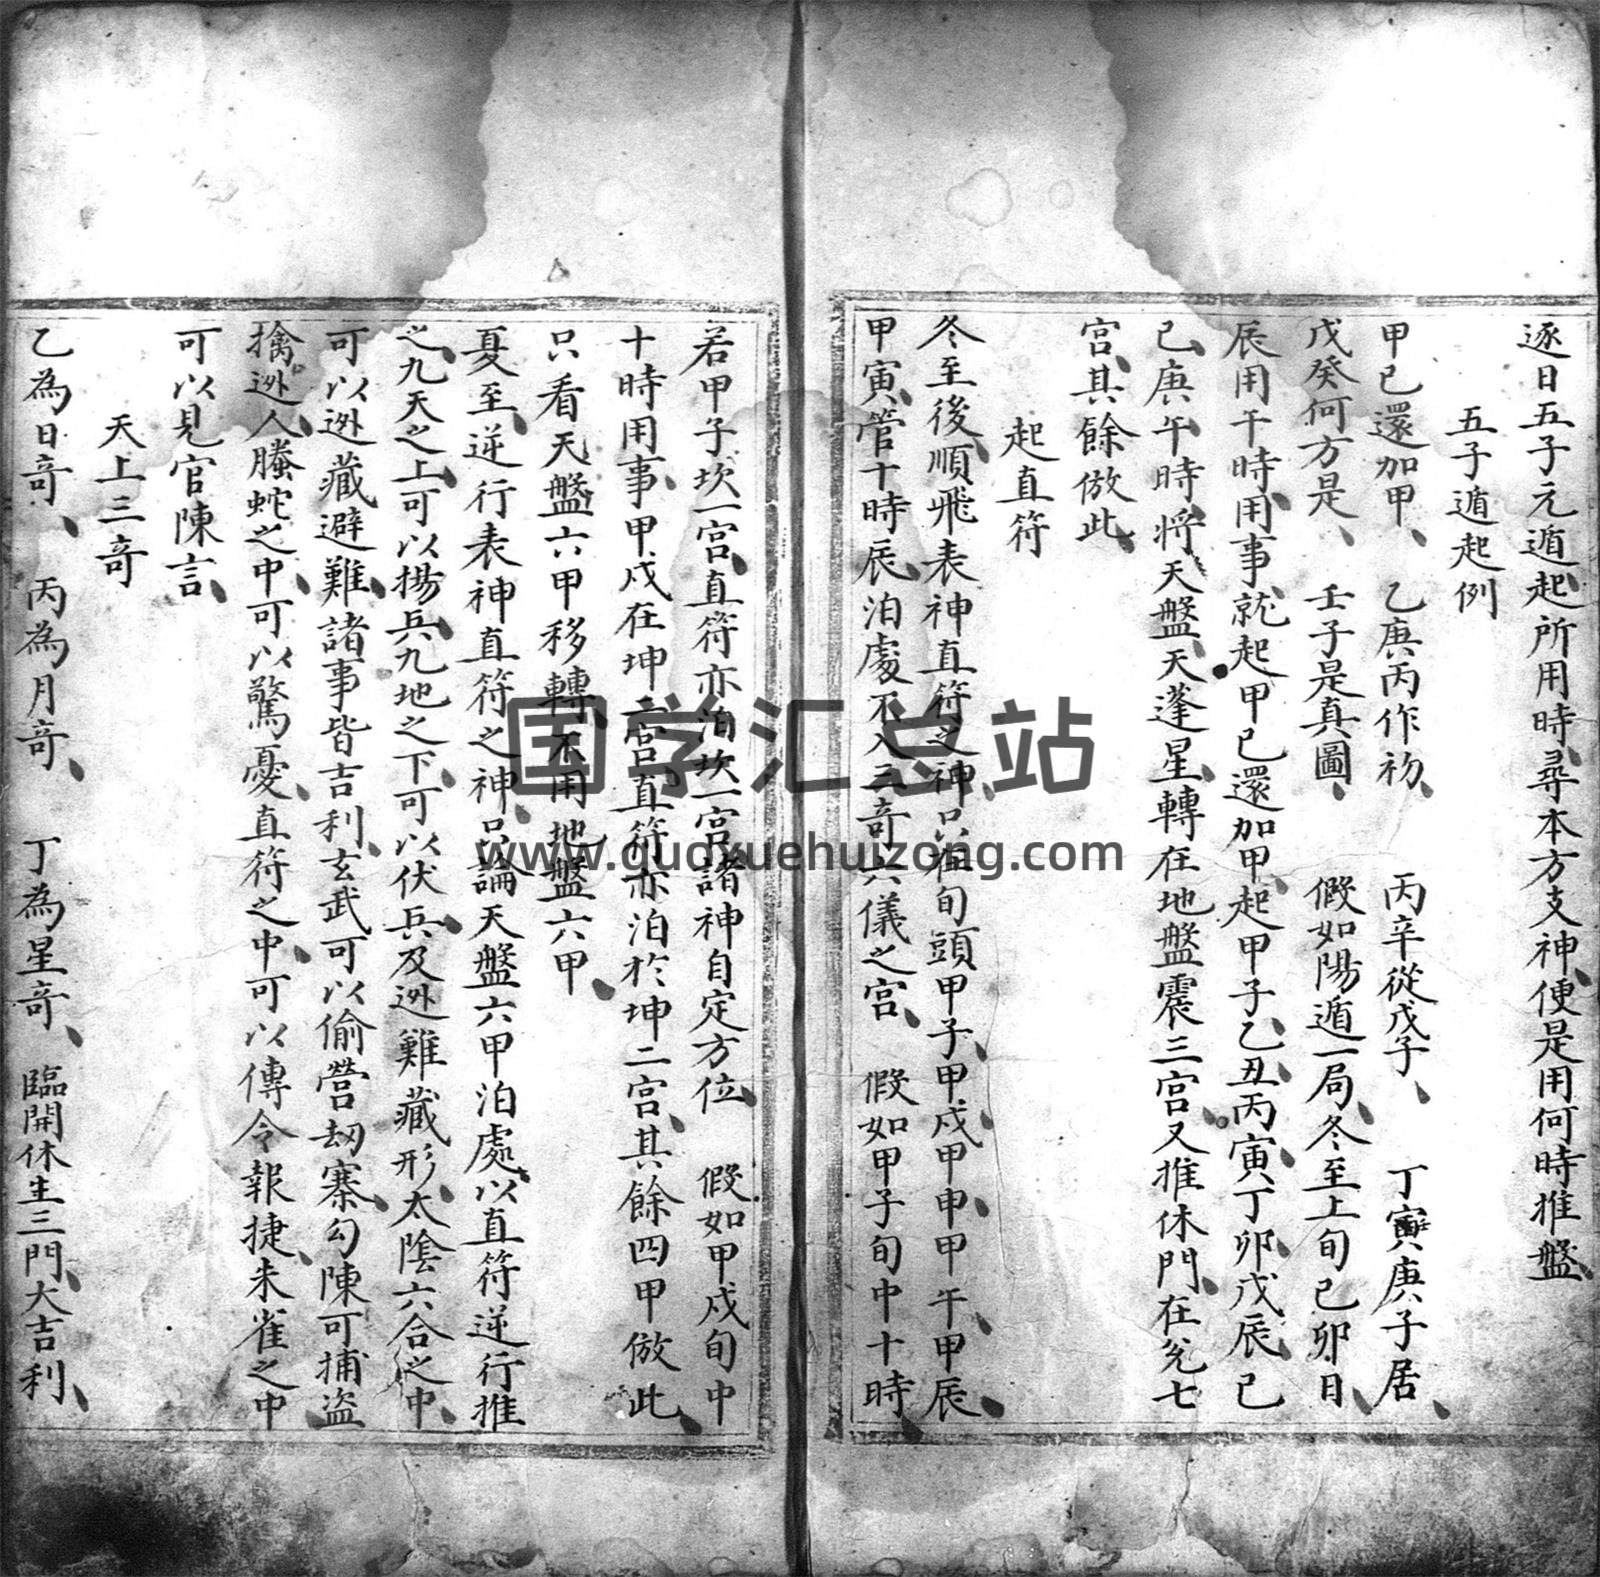 逐日五子元遁起所用時尋本方支神便是用何時推盤
五子遁起例
甲己還加甲 乙庚丙作初 丙辛從戊子 丁寅庚子居
戊癸何方是 壬子是真圖 假如陽遁一局冬至上旬己卯日
辰用午時用事就起甲己還加甲起甲子乙丑丙寅丁卯戊辰己
巳庚午時將天盤天蓬星轉在地盤震三宮又推休門在兌七
宮其餘倣此
起直符
冬至後順飛表神直符之神只在旬頭甲子甲戌甲申甲午甲辰
甲寅管十時辰泊處不入三奇六儀之宮 假如甲子旬中十時
若甲子坎一宮直符亦泊坎一宮諸神自定方位 假如甲戌旬中
十時用事甲戌在坤二宮直符亦泊於坤二宮其餘四甲倣此
只看天盤六甲移轉不用地盤六甲
夏至逆行表神直符之神只論天盤六甲泊處以直符逆行推
之九天之上可以揚兵九地之下可以伏兵及逃難藏形太陰六合之中
可以逃藏避難諸事皆吉利玄武可以偷營劫寨勾陳可捕盜
擒逃人螣蛇之中可以驚憂直符之中可以傳令報捷朱雀之中
可以見官陳言
天上三奇
乙為日奇 丙為月奇 丁為星奇 臨開休生三門大吉利
国学汇总站
www.guoxuehuizong.com